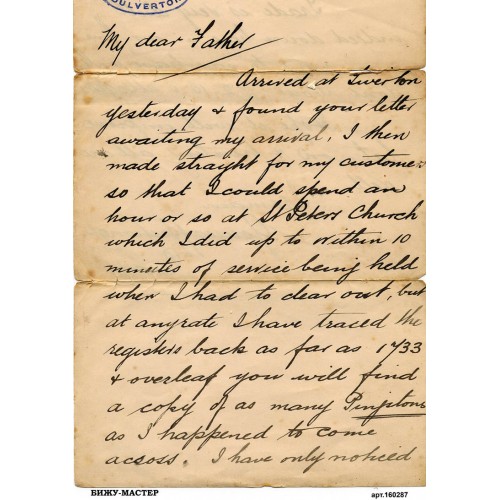 DULVERTON
My dear Father
Arrived at Tiverton
yesterday & found your letter
awaiting my arrival. I then
made straight for my customer
so that I could spend an
hour or so at St Peters Church
which I did up to within 10
minutes of service being held
when I had to clear out, but
at anyrate I have traced the
registers back as far as 1733
& overleaf you will find
a copy of as many
as I happened to come
across. I have only noticed
БИЖУ-МАСТЕР
арт.160287